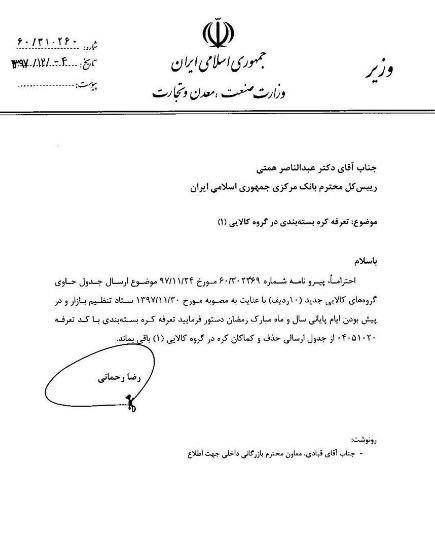 شماره: ۶۰/۳۱۰۲۶۰
تاریخ: ۱۳۹۷/۱۲/۰۴
پیوست:
جمهوری اسلامی ایران
وزارت صنعت، معدن و تجارت
وزیر
جناب آقای دکتر عبدالناصر همتی
رییس‌کل محترم بانک مرکزی جمهوری اسلامی ایران
موضوع: تعرفه کره بسته‌بندی در گروه کالایی (۱)
باسلام
احتراماً، پیرو نامه شماره ۶۰/۳۰۲۳۶۹ مورخ ۹۷/۱۱/۲۴ موضوع ارسال جدول حاوی
گروه‌های کالایی جدید (۱۰ردیف) با عنایت به مصوبه مورخ ۱۳۹۷/۱۱/۳۰ ستاد تنظیم بازار و در
پیش بودن ایام پایانی سال و ماه مبارک رمضان دستور فرمایید تعرفه کره بسته‌بندی با کد تعرفه
۰۴۰۵۱۰۲۰ از جدول ارسالی حذف و کماکان کره در گروه کالایی (۱) باقی بماند.
رضا رحمانی
رونوشت:
- جناب آقای قبادی، معاون محترم بازرگانی داخلی جهت اطلاع